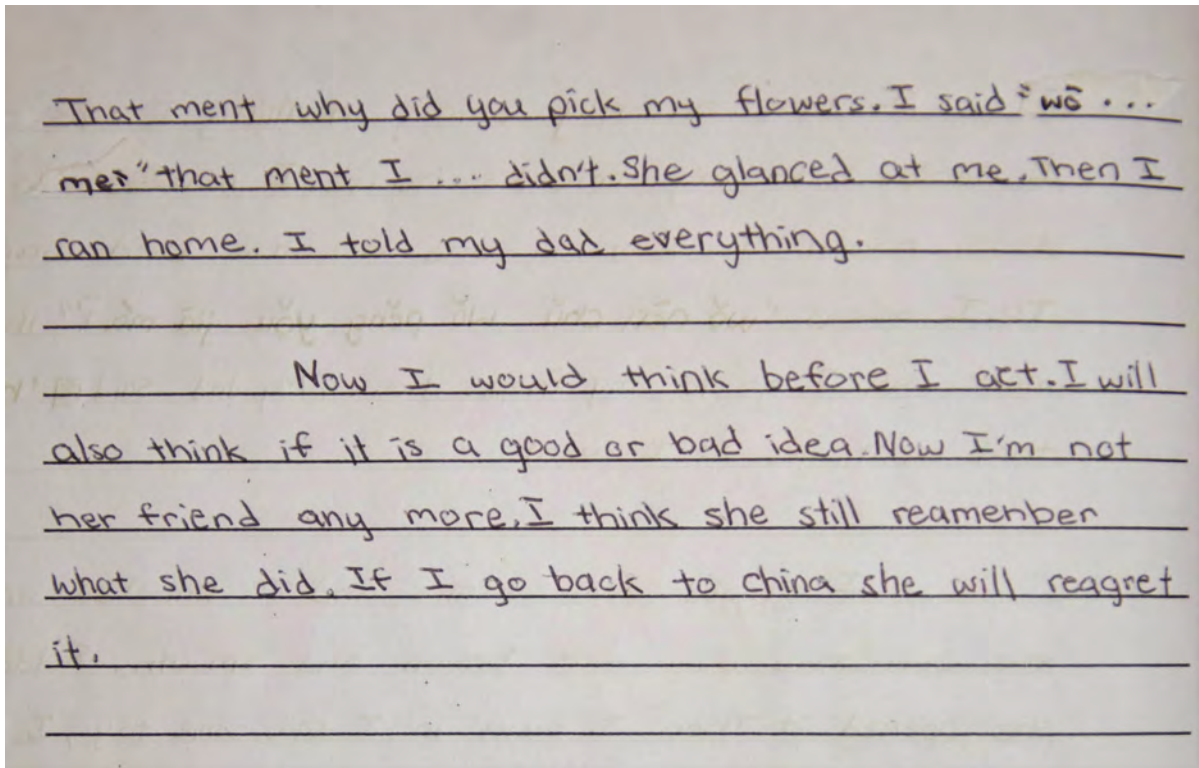 That ment why did you pick my flowers. I said "wǒ ...
mei" that ment I ... didn't. She glanced at me. Then I
ran home. I told my dad everything.
Now I would think before I act. I will
also think if it is a good or bad idea. Now I'm not
her friend any more. I think she still reamenber
what she did. If I go back to china she will reagret
it.